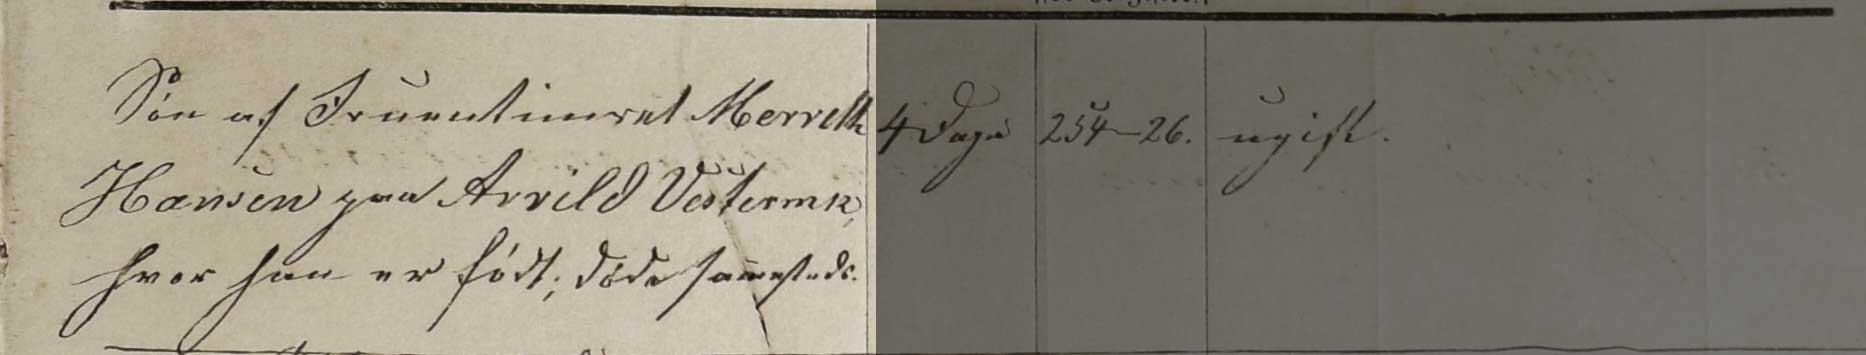 Søn af Fruentimret Merreth 4 Dage 254-26. ugift.
Hansen paa Arrild Vestermk,
hvor han er født; døde sammesteds.